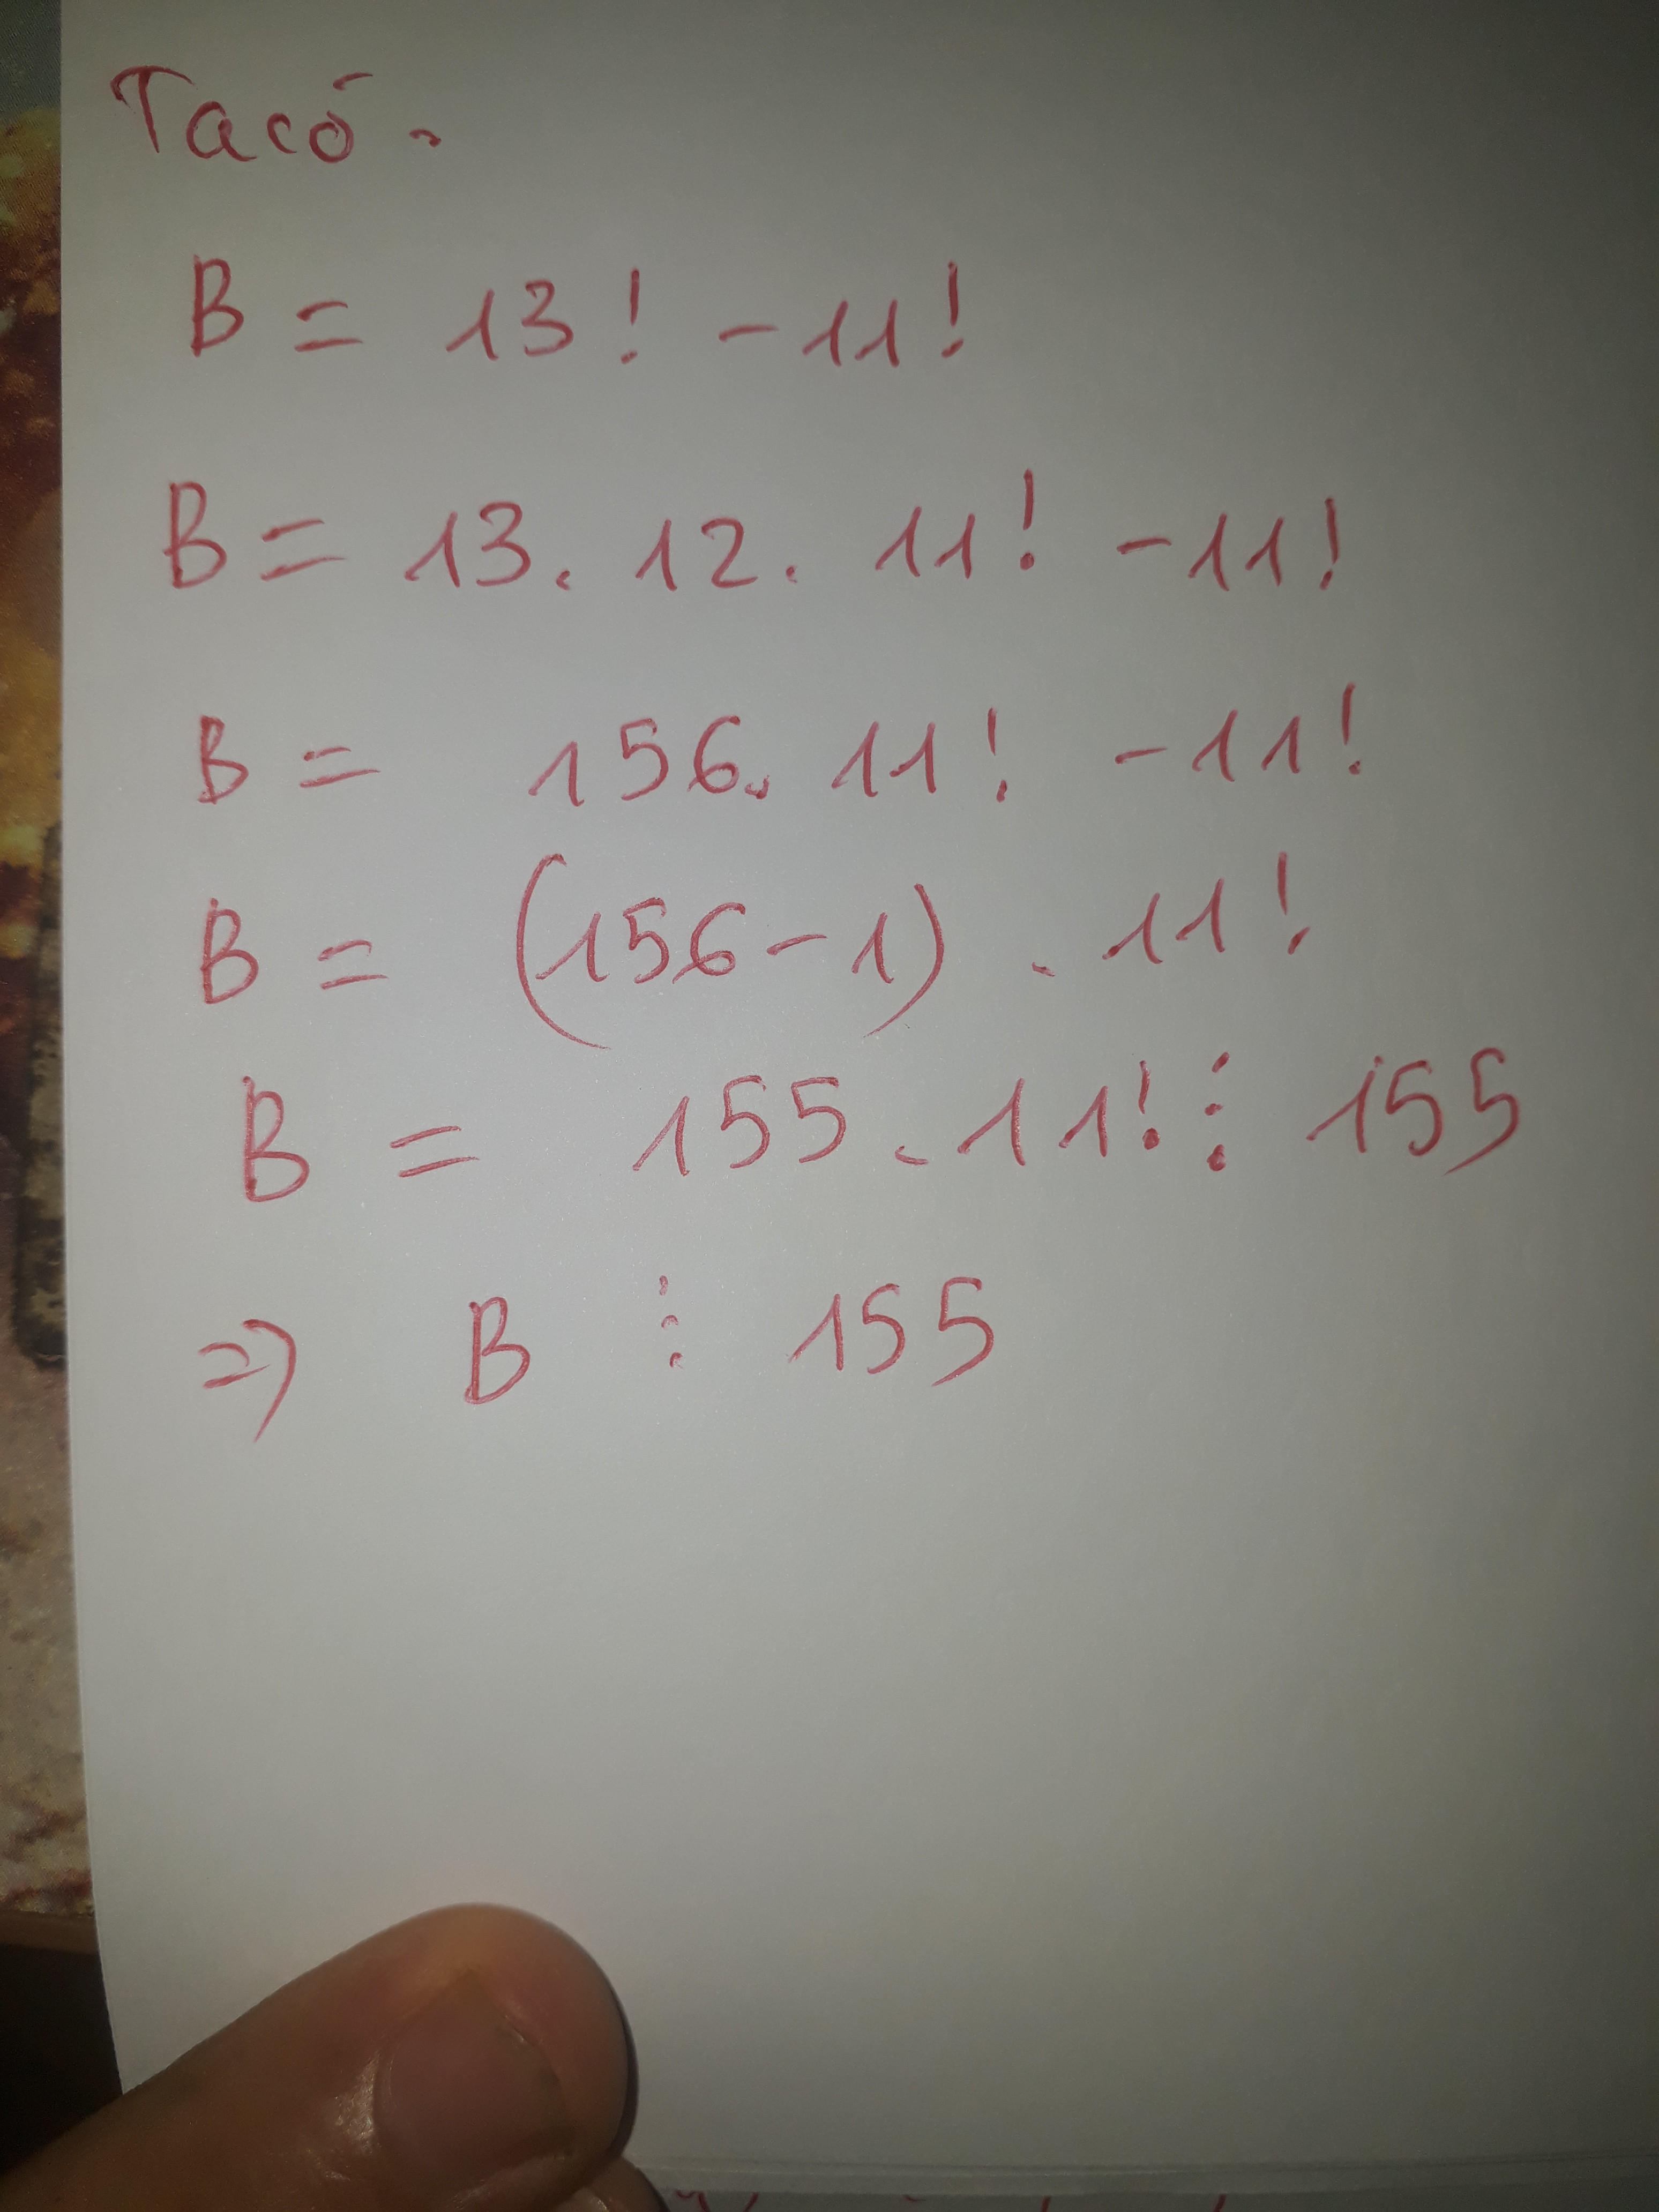 Ta có:
B = 13! - 11!
B = 13. 12. 11! - 11!
B = 156. 11! - 11!
B = (156 - 1) . 11!
B = 155 . 11! ⋮ 155
=> B ⋮ 155